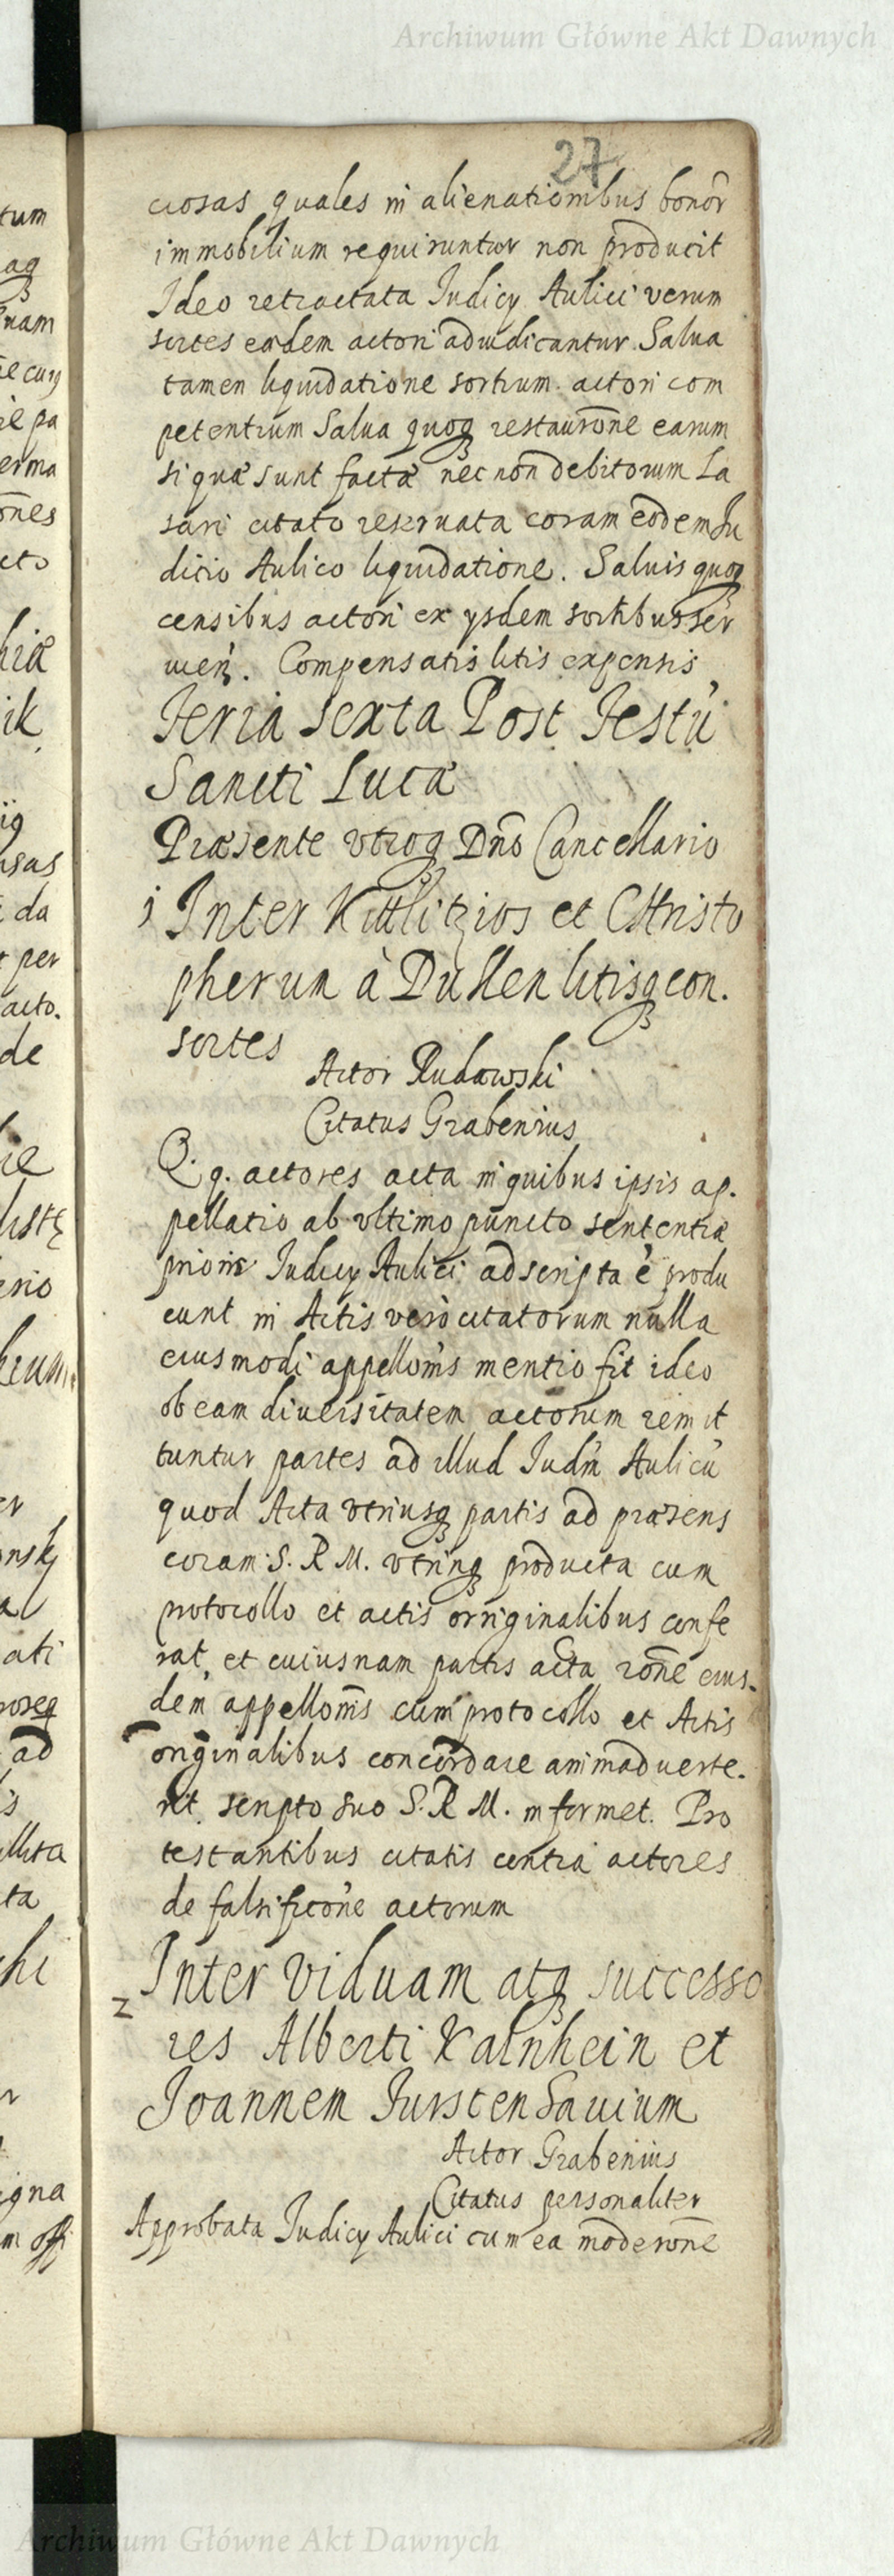 Archiwum Główne Akt Dawnych
27
ciosas quales in alienationibus bonor̃
immobilium requiruntur non producit
Ideo retractata Iudicy Aulici verum
sortes eædem actori adiudicantur. Salua
tamen liquidatione sortium actori com
petentium Salua quoq restaurõne earum
si quæ sunt factæ nec non debitorum La
sari citato reseruata coram eodem Iu
dicio Aulico liquidatione. Saluis quoq
censibus actori ex ysdem sortibus ser
uien. Compensatis litis expensis
Feria sexta Post Festũ
Sancti Lucæ
Præsente vtroq Dño Cancellario
j Inter Kittlitzios et Christo
pherum à Dullen litisq con.
sortes
Actor Rudawski
Citatus Grabenius
Q. q. actores acta in quibus ipsis ap.
pellatio ab vltimo puncto sententiæ
prioris Iudicy Aulici adscripta ẽ produ
cunt in Actis vero citatorum nulla
eiusmodi appellõnis mentio fit ideo
ob eam diuersitatem actorum remit
tuntur partes ad illud Iudm̃ Aulicũ
quod Acta vtriusq partis ad præsens
coram S. R. M. vtrinq producta cum
protocollo et actis originalibus confe
rat, et cuiusnam partis acta rõne eius.
dem appellõnis cum protocollo et Actis
originalibus concordare animaduerte.
rit scripto suo S. R. M. informet. Pro
testantibus citatis contra actores
de falsificõne actorum
2 Inter Viduam atq successo
res Alberti Kalnhein et
Joannem Furstensauium
Actor Grabenius
Citatus personaliter
Approbata Iudicy Aulici cum ea moderõne
Archiwum Główne Akt Dawnych